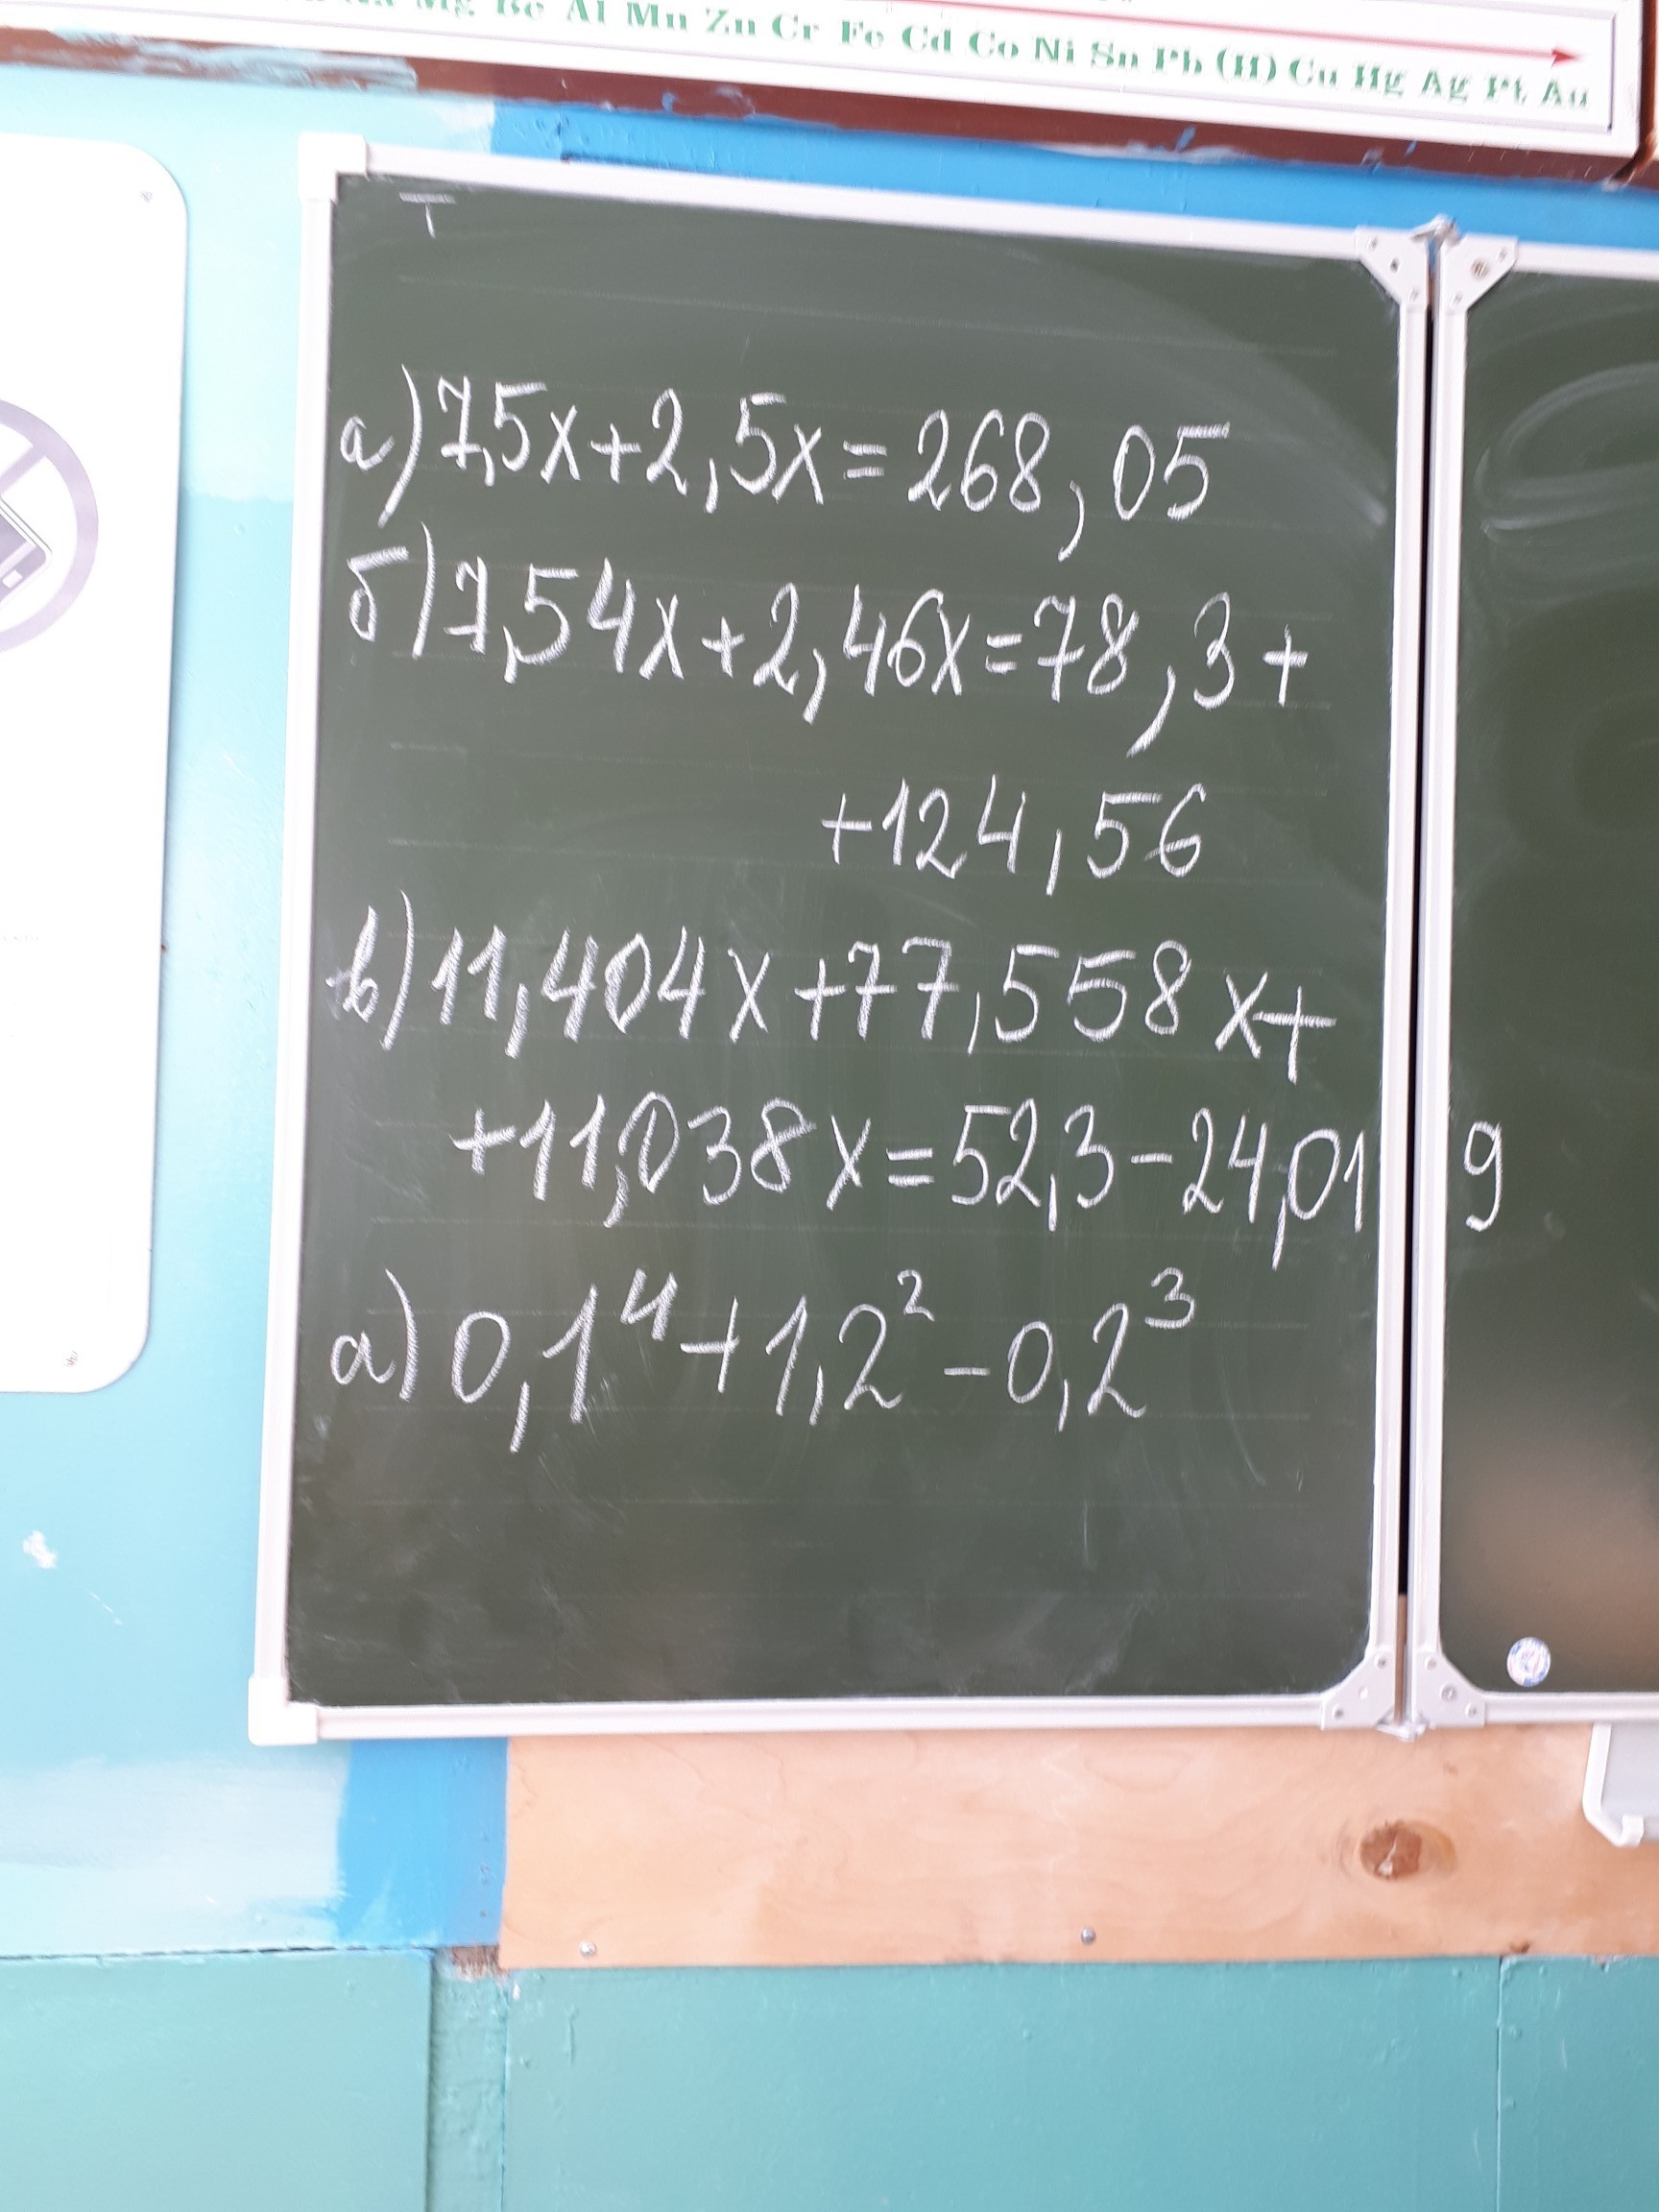 Mg Be Al Mn Zn Cr Fe Cd Co Ni Sn Pb (H) Cu Hg Ag Pt Au
а) 7,5x+2,5x=268,05
б) 7,54x+2,46x=78,3+
+124,56
в) 11,404x+77,558x+
+11,038x=52,3-24,019
а) 0,1⁴+1,2²-0,2³